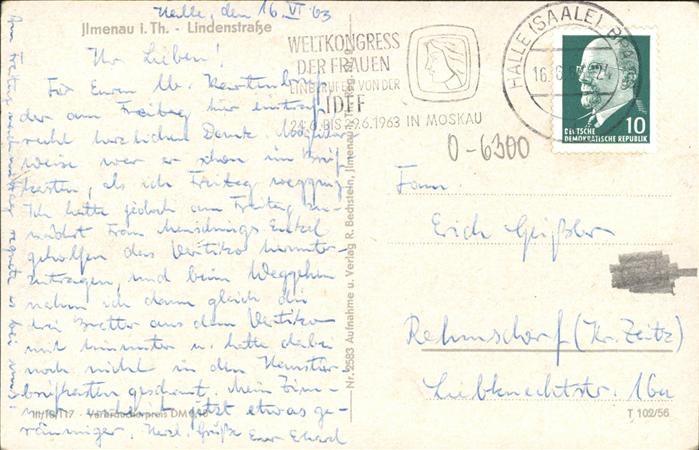 Halle, den 16. VI. 63
Jlmenau i. Th. - Lindenstraße
Ihr Lieben!
Für Euren lb. Kartenbrief
der am Freitag hier eintraf
recht herzlichen Dank.
weise war er schon im Brief-
kasten, als ich Freitag wegging.
Ich hatte jedoch am Freitag zu-
nächst Frau Enkel
geholfen das Vertiko herunter-
zutragen, und beim Weggehen
nahm ich dann gleich die
drei Bretter aus dem Vertiko
mit hinunter u. hatte dabei
noch nicht in den Haustür-
briefkasten geschaut. Mein Zim-
mer jetzt etwas ge-
räumiger. Herzl. Grüße Euer Ekard
III/18/117 Verbraucherpreis DM
Nr. 2583 Aufnahme u. Verlag R. Bechstein, Jlmenau
WELTKONGRESS
DER FRAUEN
EINBERUFEN VON DER
IDFF
24.6. BIS 29.6.1963 IN MOSKAU
HALLE (SAALE)
16.6.
10
DEUTSCHE
DEMOKRATISCHE REPUBLIK
O-6300
Fam.
Erich Geißler
Rehmsdorf (Kr. Zeitz)
Liebknechtstr. 16a
T 102/56